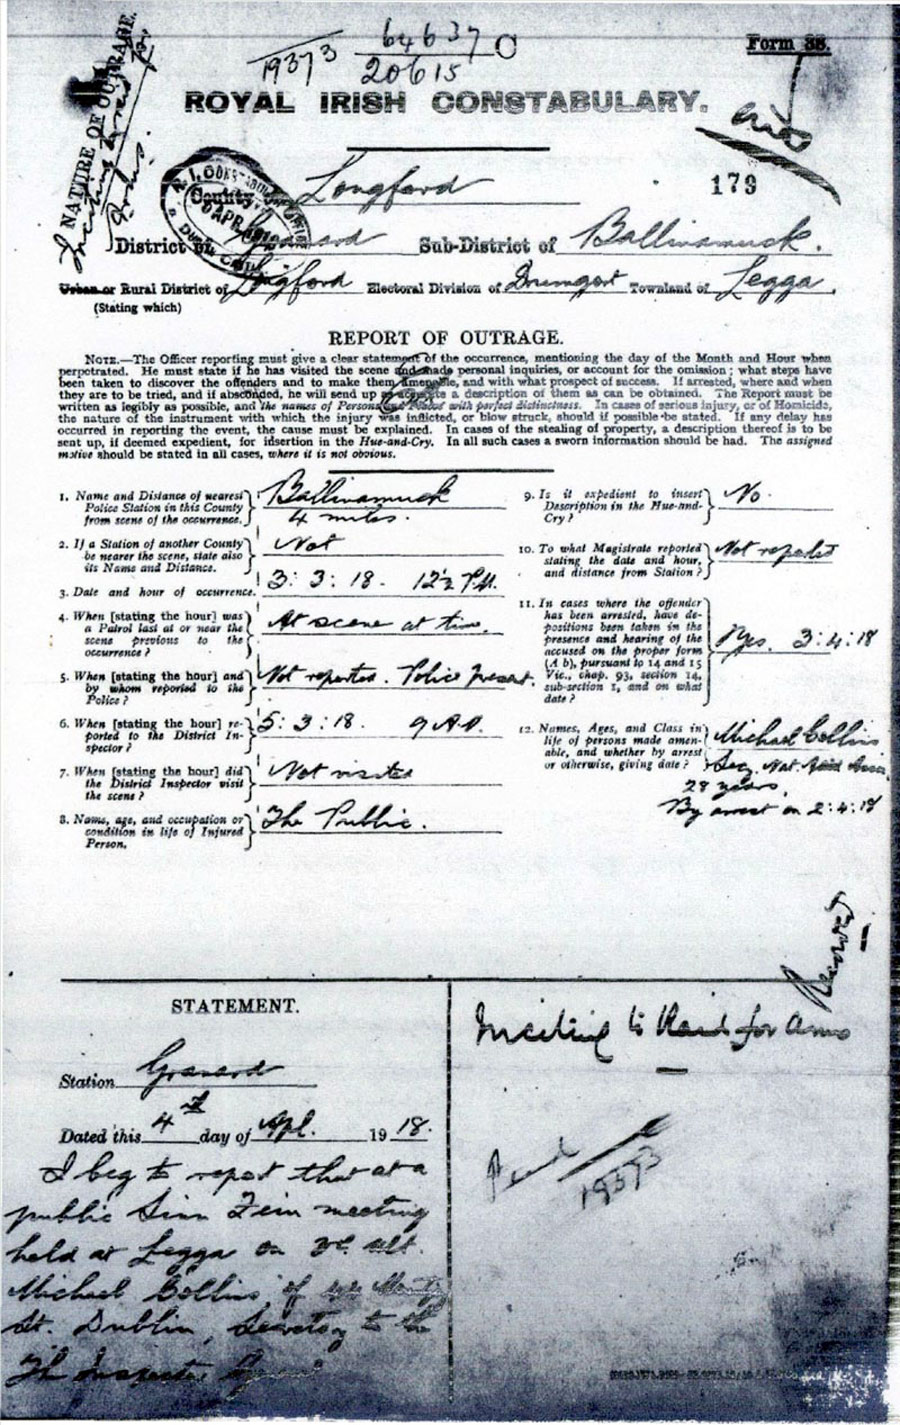 64637
19373
20615
Form 38.
ROYAL IRISH CONSTABULARY.
NATURE OF OUTRAGE.
Inciting to raid for Arms.
County Longford
179
District of Granard Sub-District of Ballinamuck.
Urban or Rural District of Longford Electoral Division of Drumgort Townland of Legga.
(Stating which)
REPORT OF OUTRAGE.
NOTE.—The Officer reporting must give a clear statement of the occurrence, mentioning the day of the Month and Hour when
perpetrated. He must state if he has visited the scene and made personal inquiries, or account for the omission; what steps have
been taken to discover the offenders and to make them amenable, and with what prospect of success. If arrested, where and when
they are to be tried, and if absconded, he will send up as accurate a description of them as can be obtained. The Report must be
written as legibly as possible, and the names of Persons and Places with perfect distinctness. In cases of serious injury, or of Homicide,
the nature of the instrument with which the injury was inflicted, or blow struck, should if possible be stated. If any delay has
occurred in reporting the event, the cause must be explained. In cases of the stealing of property, a description thereof is to be
sent up, if deemed expedient, for insertion in the Hue-and-Cry. In all such cases a sworn information should be had. The assigned
motive should be stated in all cases, where it is not obvious.
1. Name and Distance of nearest
Police Station in this County
from scene of the occurrence.
Ballinamuck
4 miles.
2. If a Station of another County
be nearer the scene, state also
its Name and Distance.
Not
3. Date and hour of occurrence. 3:3:18. 12½ P.M.
4. When [stating the hour] was
a Patrol last at or near the
scene previous to the
occurrence?
At scene at time.
5. When [stating the hour] and
by whom reported to the
Police?
Not reported. Police Present.
6. When [stating the hour] re-
ported to the District In-
spector?
5:3:18. 9 A.M.
7. When [stating the hour] did
the District Inspector visit
the scene?
Not visited
8. Name, age, and occupation or
condition in life of Injured
Person.
The Public.
9. Is it expedient to insert
Description in the Hue-and-
Cry?
No.
10. To what Magistrate reported
stating the date and hour,
and distance from Station?
Not reported
11. In cases where the offender
has been arrested, have de-
positions been taken in the
presence and hearing of the
accused on the proper form
(A b), pursuant to 14 and 15
Vic., chap. 93, section 14,
sub-section 1, and on what
date?
Yes. 3:4:18
12. Names, Ages, and Class in
life of persons made amen-
able, and whether by arrest
or otherwise, giving date?
Michael Collins
Sec. Nat. Aid Assn.
28 years.
By arrest on 2:4:18
STATEMENT.
Station Granard
Dated this 4th day of Apl. 1918.
I beg to report that at a
public Sinn Fein meeting
held at Legga on 3rd ult.
Michael Collins, of
St. Dublin, Secretary to the
The Inspector General
Inciting to Raid for Arms
19373